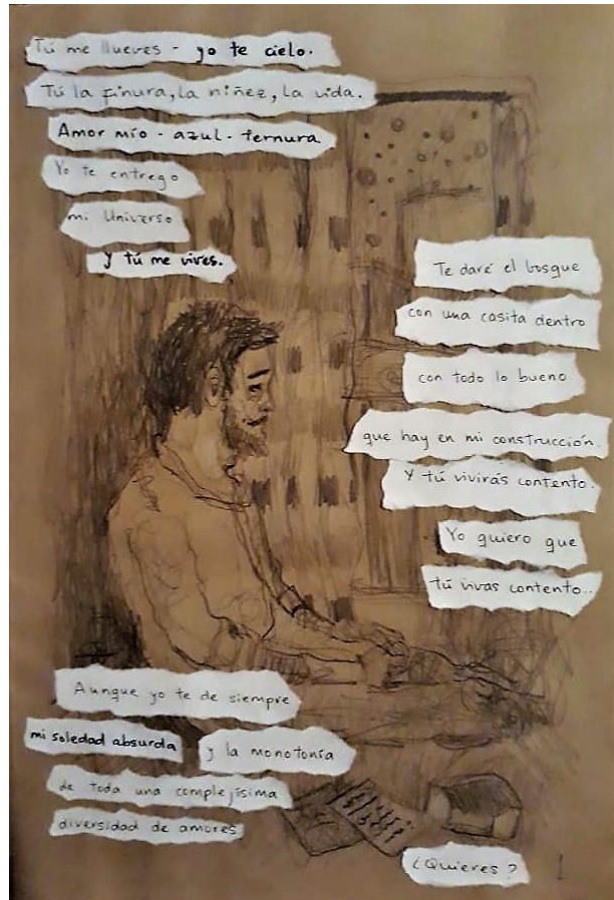 Tú me llueves - yo te cielo.
Tú la finura, la niñez, la vida.
Amor mío - azul - ternura
Yo te entrego
mi Universo
y tú me vives.
Te daré el bosque
con una casita dentro
con todo lo bueno
que hay en mi construcción.
Y tú vivirás contento.
Yo quiero que
tú vivas contento..
Aunque yo te de siempre
mi soledad absurda
y la monotonía
de toda una complejísima
diversidad de amores
¿Quieres?